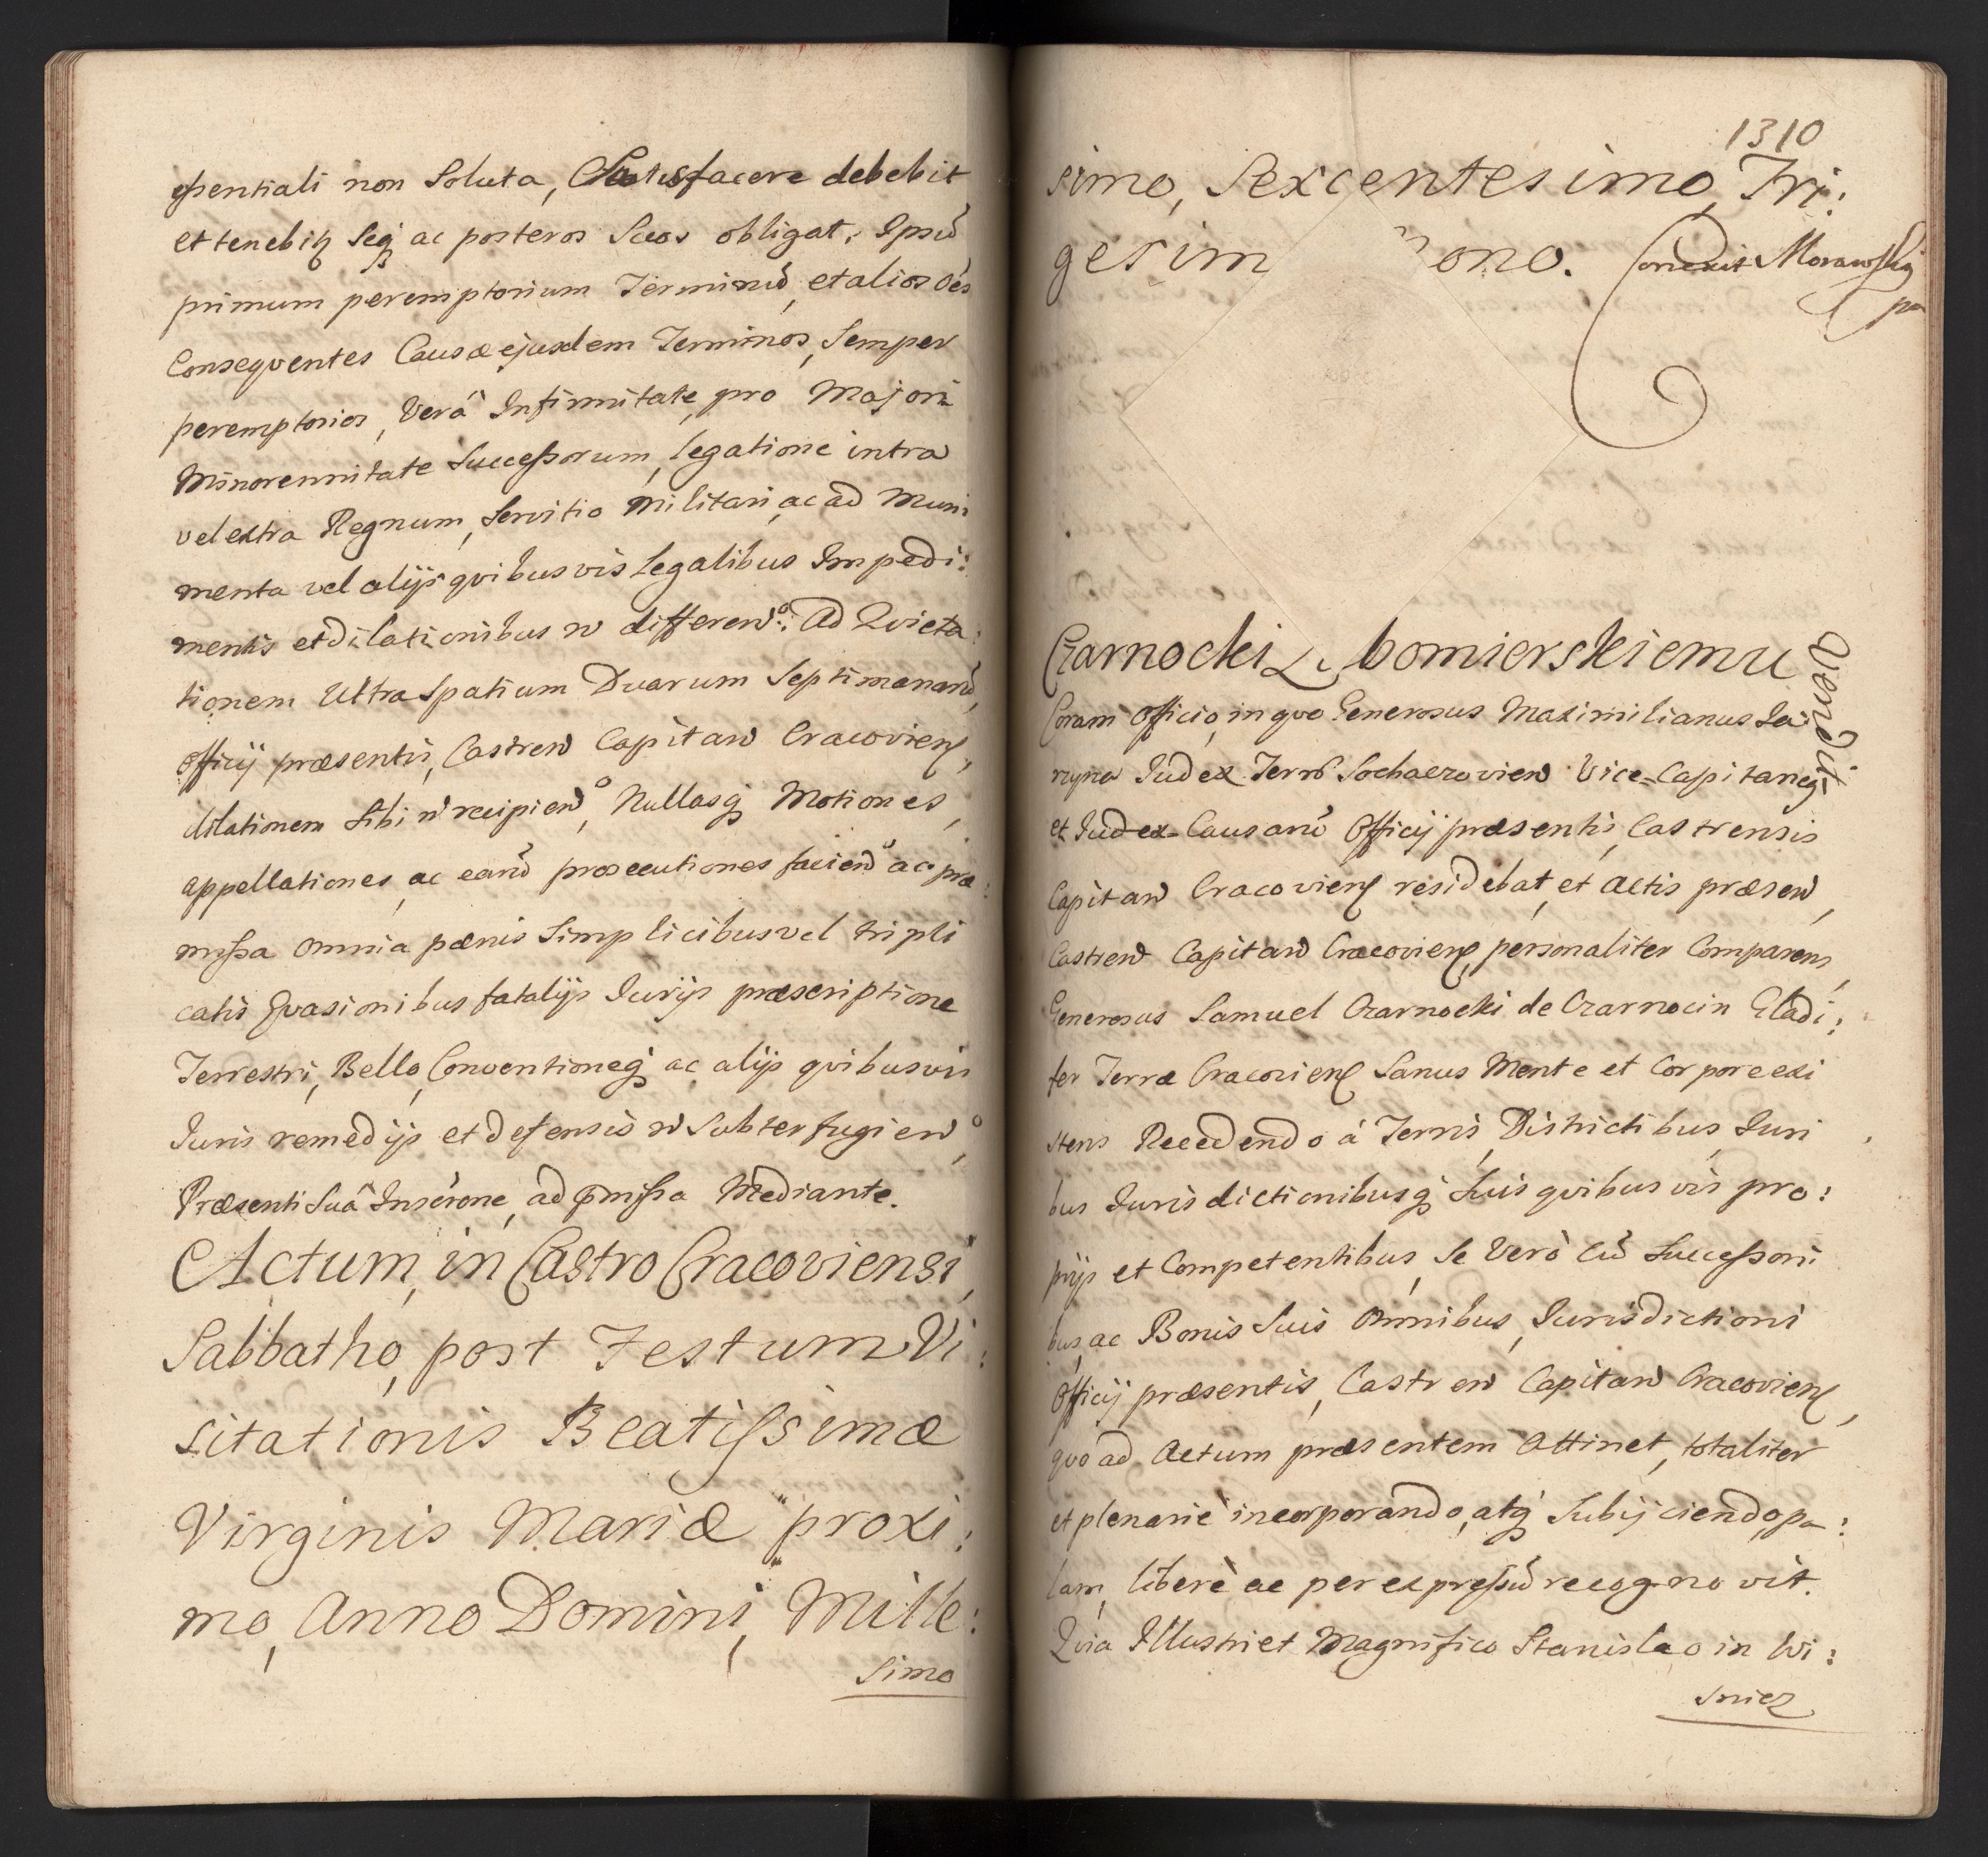 ssentiali non Soluta, Satisfacere debebit
et tenebitʒ Seqʒ ac posteros Suos obligat, Ipsũ
primum peremptorium Terminũ, et alios oẽs
Conseqventes Causæ ejusdem Terminos, Semper
peremptorios, Verâ Infirmitate, pro Majori
Minorennitate Successorum, legatione intra
vel extra Regnum, Servitio Militari, ac ad Muni
menta vel alijs qvibusvis Legalibus Impedi:
mentis et dilationibus n̄ differend̄o: Ad Qvieta:
tionem Ultra Spatium Duarum Septimanarũ,
Officij præsentis, Castren̄ Capitan̄ Cracovien̄,
dilationem Sibi n̄ recipien̄o, Nullasqʒ Motiones,
appellationes, ac earũ prosecutiones facien̄o ac præ:
missa omnia pænis Simplicibus vel tripli
catis Evasionibus fatalijs Iurijs præscriptione
Terrestri, Bello, Conventioneqʒ ac alijs qvibusvis
Iuris remedijs et defensiõ n̄ Subterfugien̄o,
Præsenti Suâ Inscrõne, ad p̄missa Mediante.
Actum, in Castro Cracoviensi,
Sabbatho, post Festum Vi:
sitationis Beatissimæ
Virginis Mariæ proxi:
mo, Anno Domini, Mille:
simo
1310
simo, Sexcentesimo, Tri:
gesim ono. Correxit Morawski
Czarnocki Lubomierskiemu
Coram Officio, in qvo Generosus Maximilianus Ja
rzyna Judex Terrᵉ Sochaczovien̄ Vice-Capitaneqʒ
et Judex Causarũ Officij præsentis, Castrensis
Capitan̄ Cracovien̄ residebat, et Actis præsen̄,
Castren̄ Capitan̄ Cracovien̄, personaliter Comparens,
Generosus Samuel Czarnocki de Czarnocin Gladi:
fer Terræ Cracovien̄ Sanus Mente et Corpore exi
stens Recedendo á Terris, Districtibus, Iuri
bus Iurisdictionibusqʒ Suis qvibusvis pro:
prijs et Competentibus, Se Verò cũ Successori
bus, ac Bonis Suis Omnibus, Iurisdictioni
Officij præsentis, Castren̄ Capitan̄ Cracovien̄,
qvo ad Actum præsentem Attinet, totaliter
et plenariè incorporando, atqʒ Subijciendo, pa:
lam, liberè ac per expressũ recognovit.
Qvia Illustri et Magnifico Stanislao in Wi:
snicz